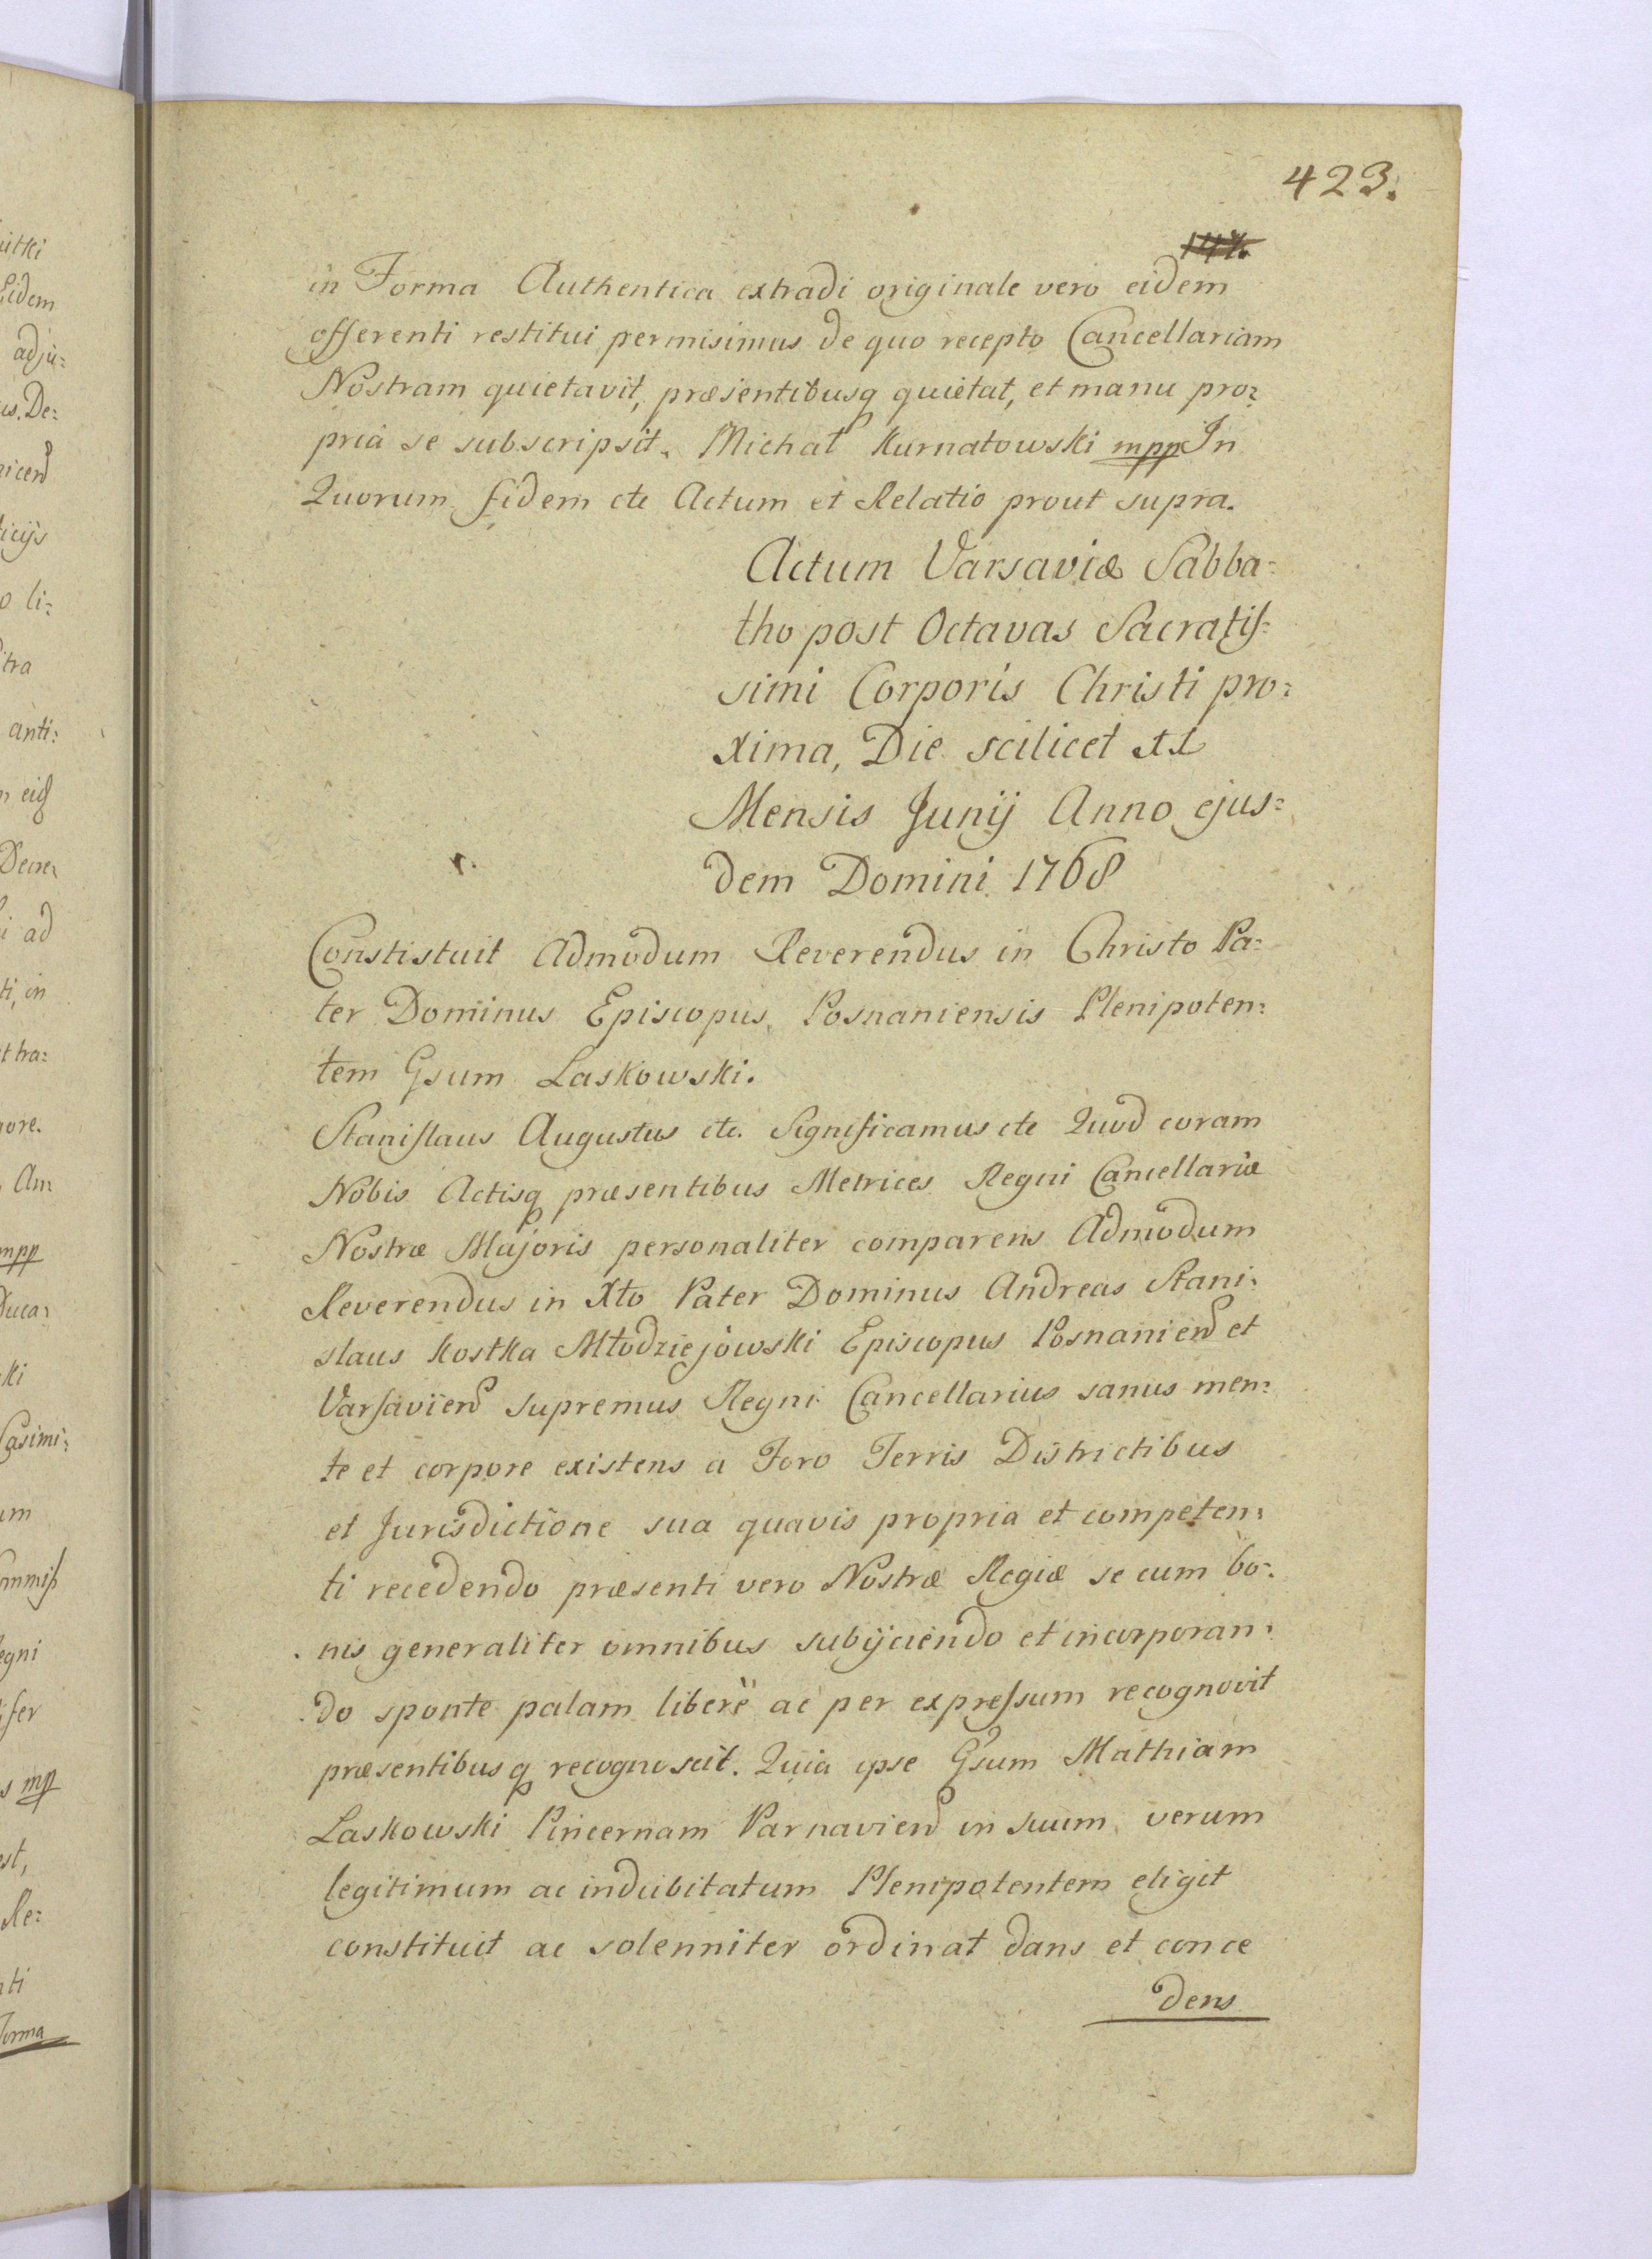 423.
in Forma Authentica extradi originale vero eidem
offerenti restitui permisimus de quo recepto Cancellariam
Nostram quietavit, præsentibusq quietat, et manu pro:
pria se subscripsit. Michał Kurnatowski mpp In
Quorum fidem etc Actum et Relatio prout supra.
Actum Varsaviæ Sabba:
tho post Octavas Sacratis:
simi Corporis Christi pro:
xima, Die scilicet XI
Mensis Junij Anno ejus:
dem Domini 1768
Constistuit Admodum Reverendus in Christo Pa:
ter Dominus Episcopus Posnaniensis Plenipoten:
tem Gsum Laskowski.
Stanislaus Augustus etc. Significamus etc Quod coram
Nobis Actisq præsentibus Metrices Regni Cancellariæ
Nostræ Majoris personaliter comparens Admodum
Reverendus in Xto Pater Dominus Andreas Stani:
slaus Kostka Młodziejowski Episcopus Posnanien et
Varsavien supremus Regni Cancellarius sanus men:
te et corpore existens a Foro Terris Districtibus
et Jurisdictione sua quavis propria et competen:
ti recedendo præsenti vero Nostræ Regiæ se cum bo:
nis generaliter omnibus subijciendo et incorporan:
do sponte palam liberè ac per expressum recognovit
præsentibusq recognoscit. Quia ipse Gsum Mathiam
Laskowski Pincernam Parnavien in suum verum
legitimum ac indubitatum Plenipotentem eligit
constituit ac solenniter ordinat dans et conce
dens